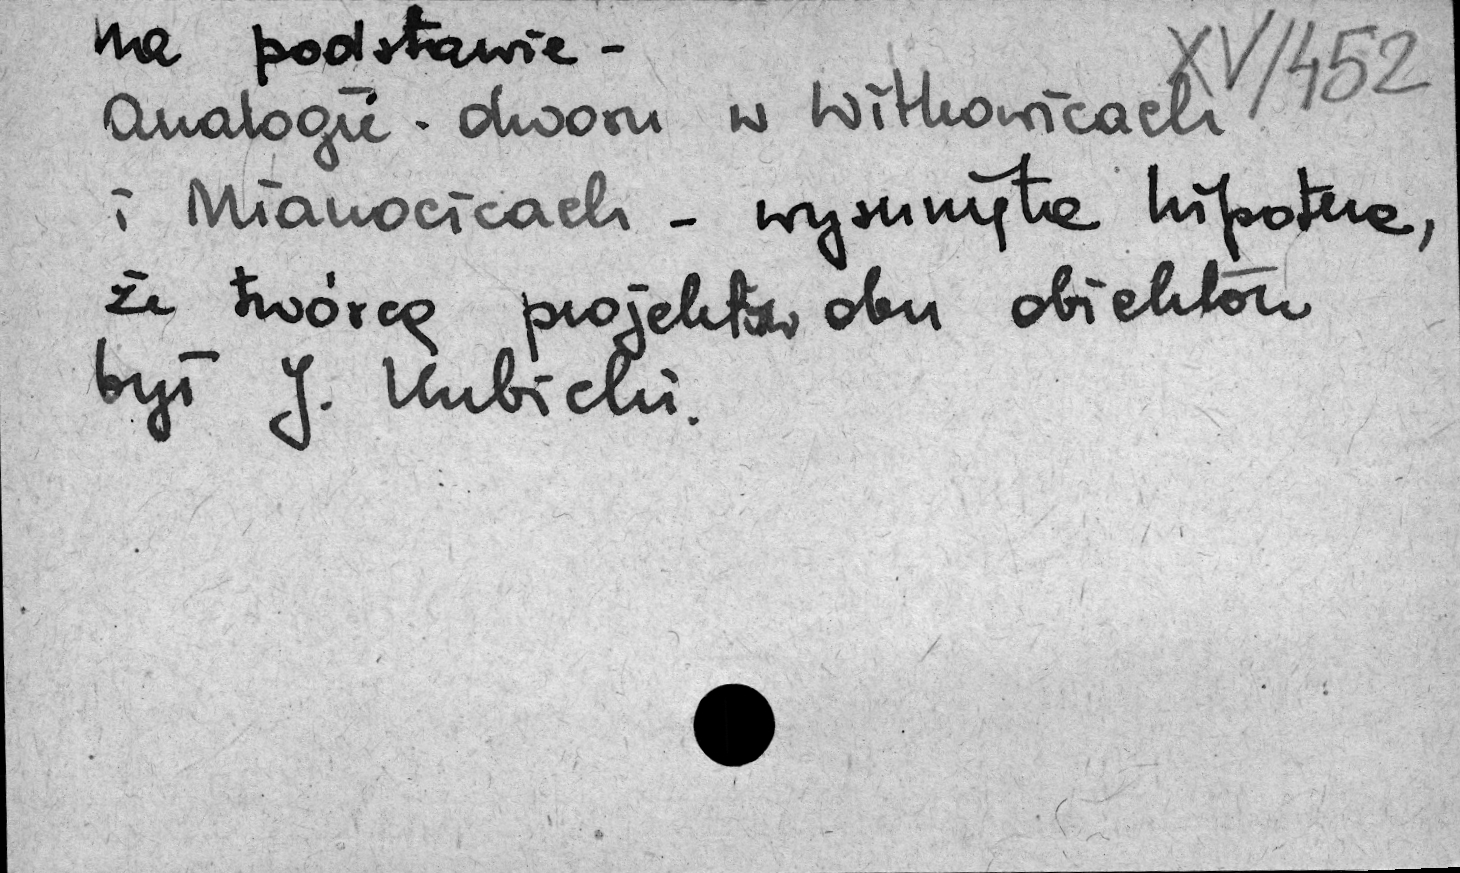 XV/452
na podstawie -
analogii - dworu w Witkowicach
i Mianocicach - wysunięta hipoteza,
że twórcą projektów obu obiektów
był J. Kubicki.